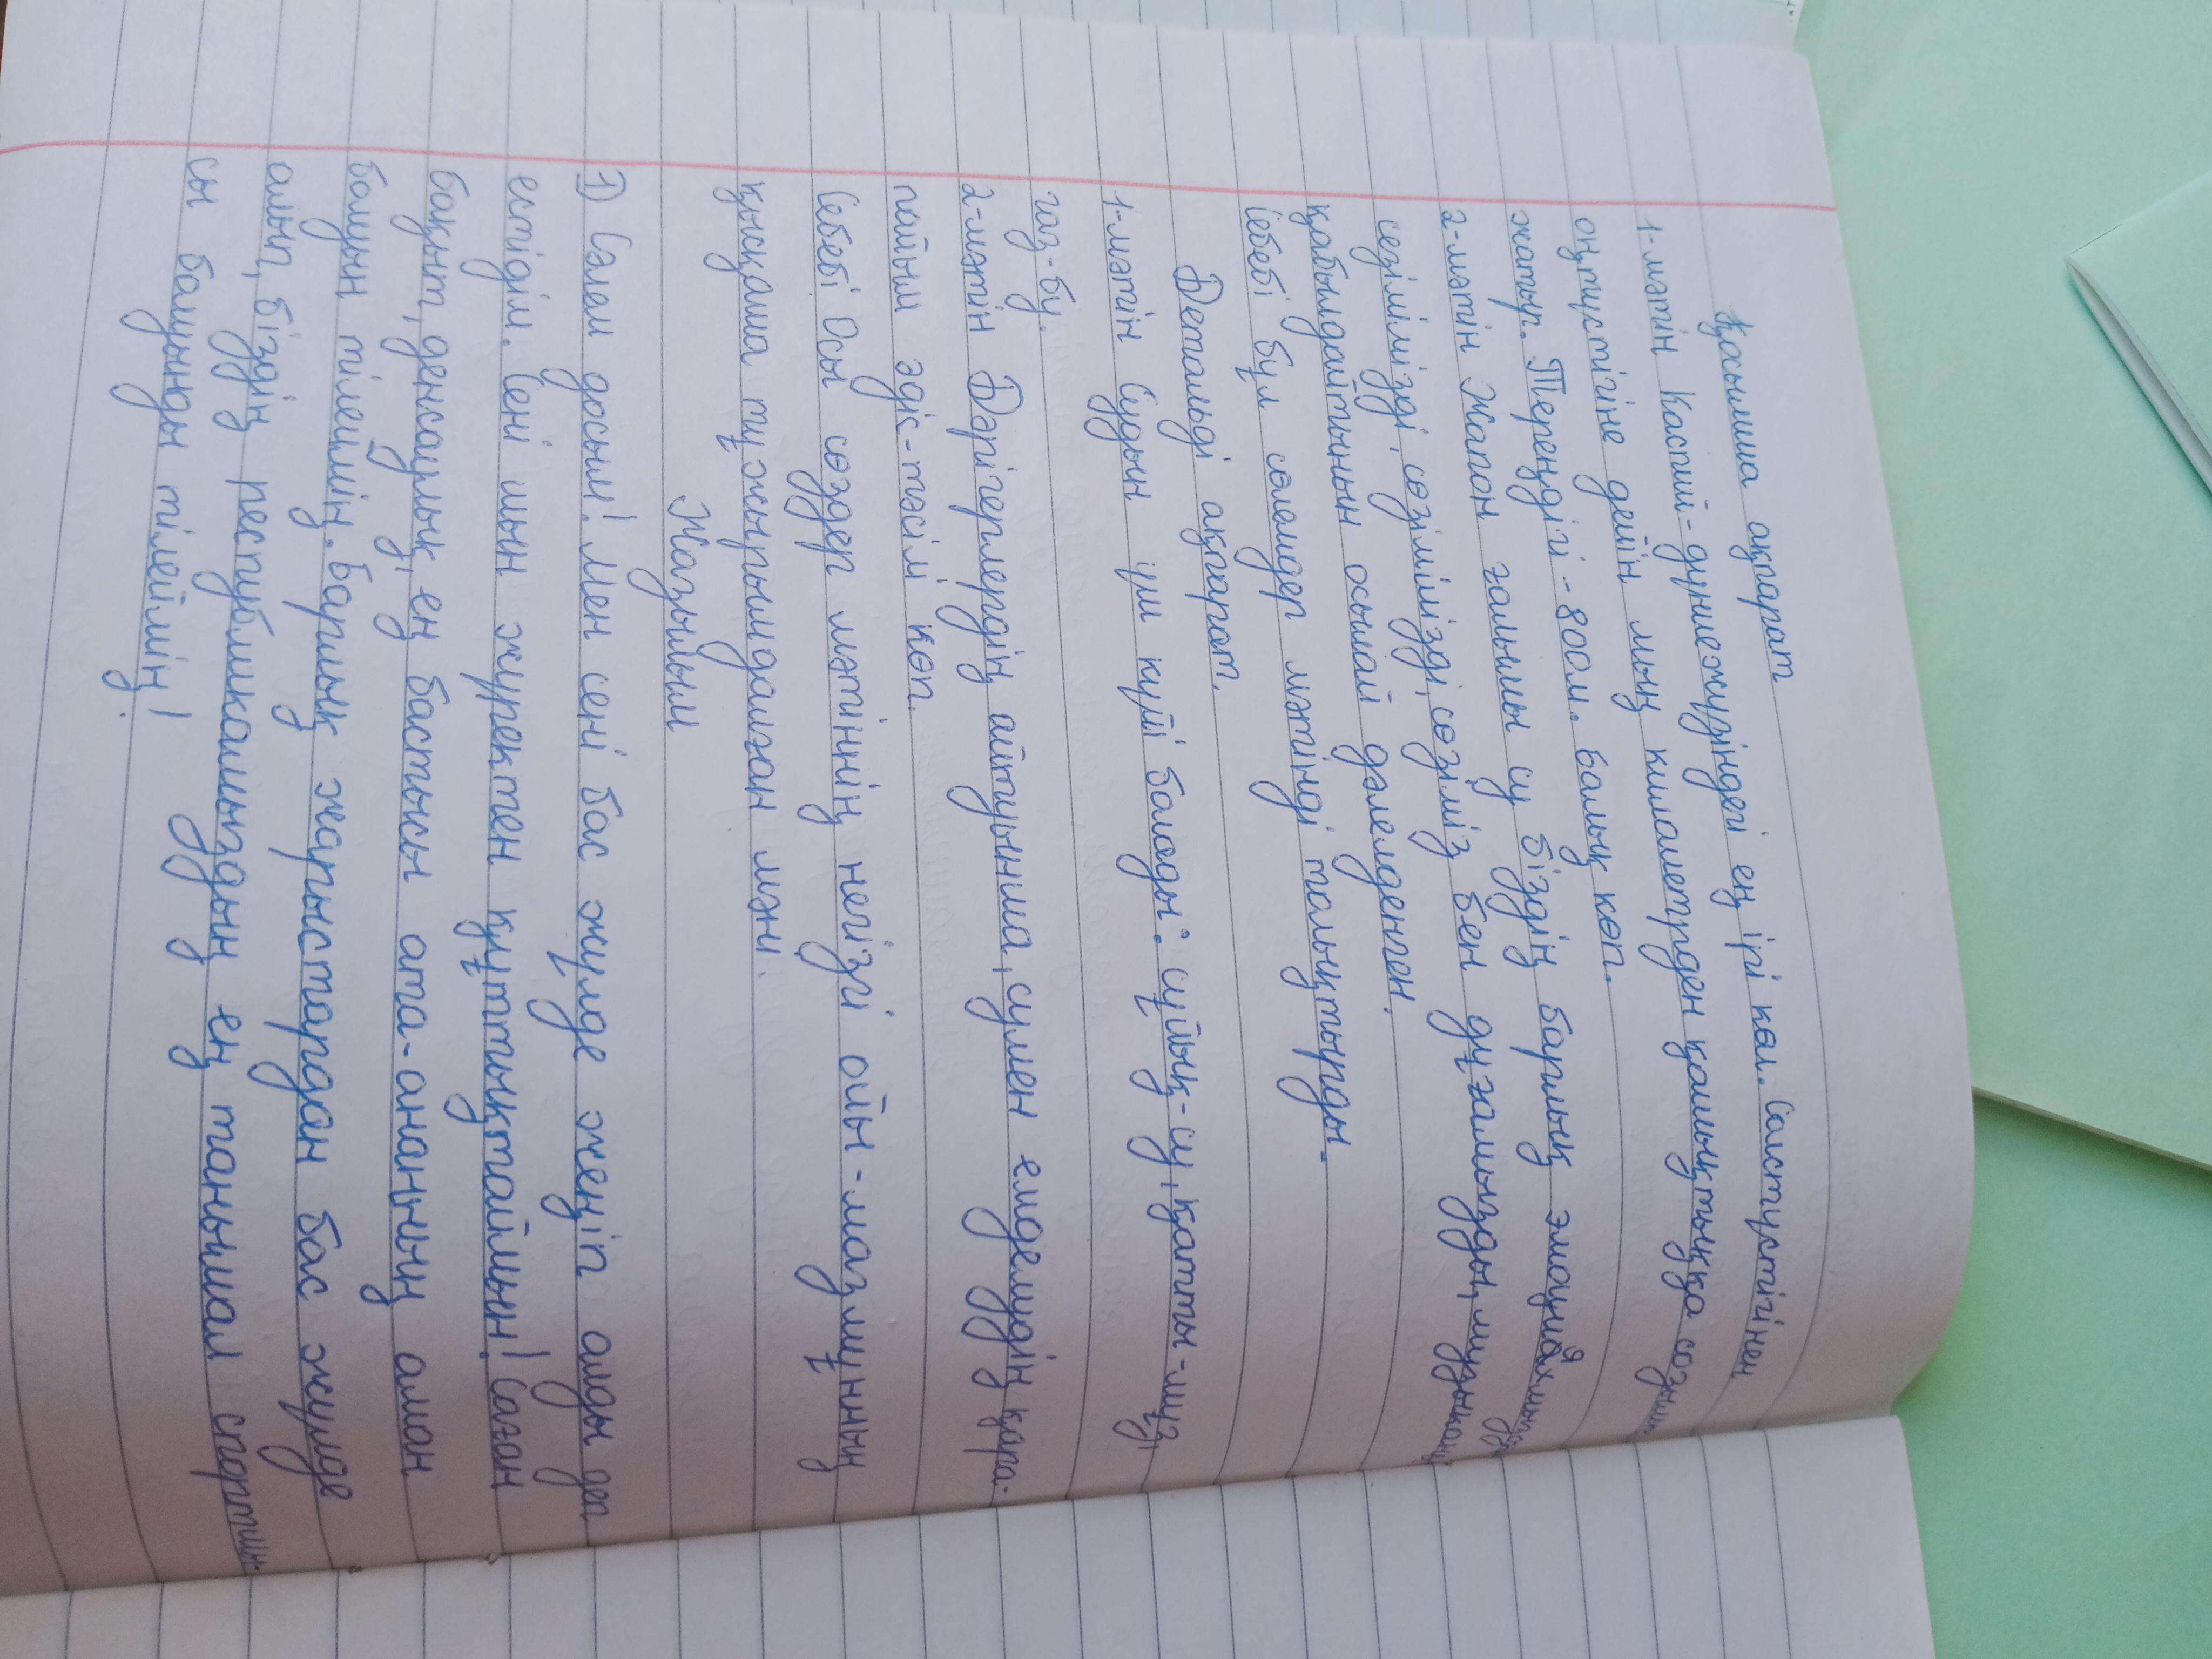 Қосымша ақпарат
1-мәтін Каспий-дүниежүзіндегі ең ірі көл. Солтүстігінен
оңтүстігіне дейін мың километрден қашықтыққа созылып
жатыр. Тереңдігі-800м. Балық көп.
2-мәтін Жапон ғалымы су біздің барлық эмоциямызды
сезімімізді, сөзімізді, сөзіміз бен дұғамызды, музыканы
қабылдайтынын осылай дәлелденген.
Себебі бұл сөлемдер мәтінді толықтырды.
Детальді ақпарат.
1-мәтін Судын үш күйі болады: сұйық-су, қатты-мұз,
газ-бу.
2-мәтін Дәрігерлердің айтуынша, сумен емдеудің қара-
пайым әдіс-тәсілі көп.
Себебі Осы сөздер мәтіннің негізгі ойы-мазмұнның
қысқаша тұжырымдалған мәні.
Жазылым
1) Сәлем досым! Мен сені бас жүлде жеңіп алды деп
естідім. Сені шын жүректен құттықтаймын! Саған
бақыт, денсаулық, ең бастысы ата-анаңның аман
болуын тілеймін. Барлық жарыстардан бас жүлде
алып, біздің республикамыздың ең танымал спортшы-
сы болуыңды тілеймін!